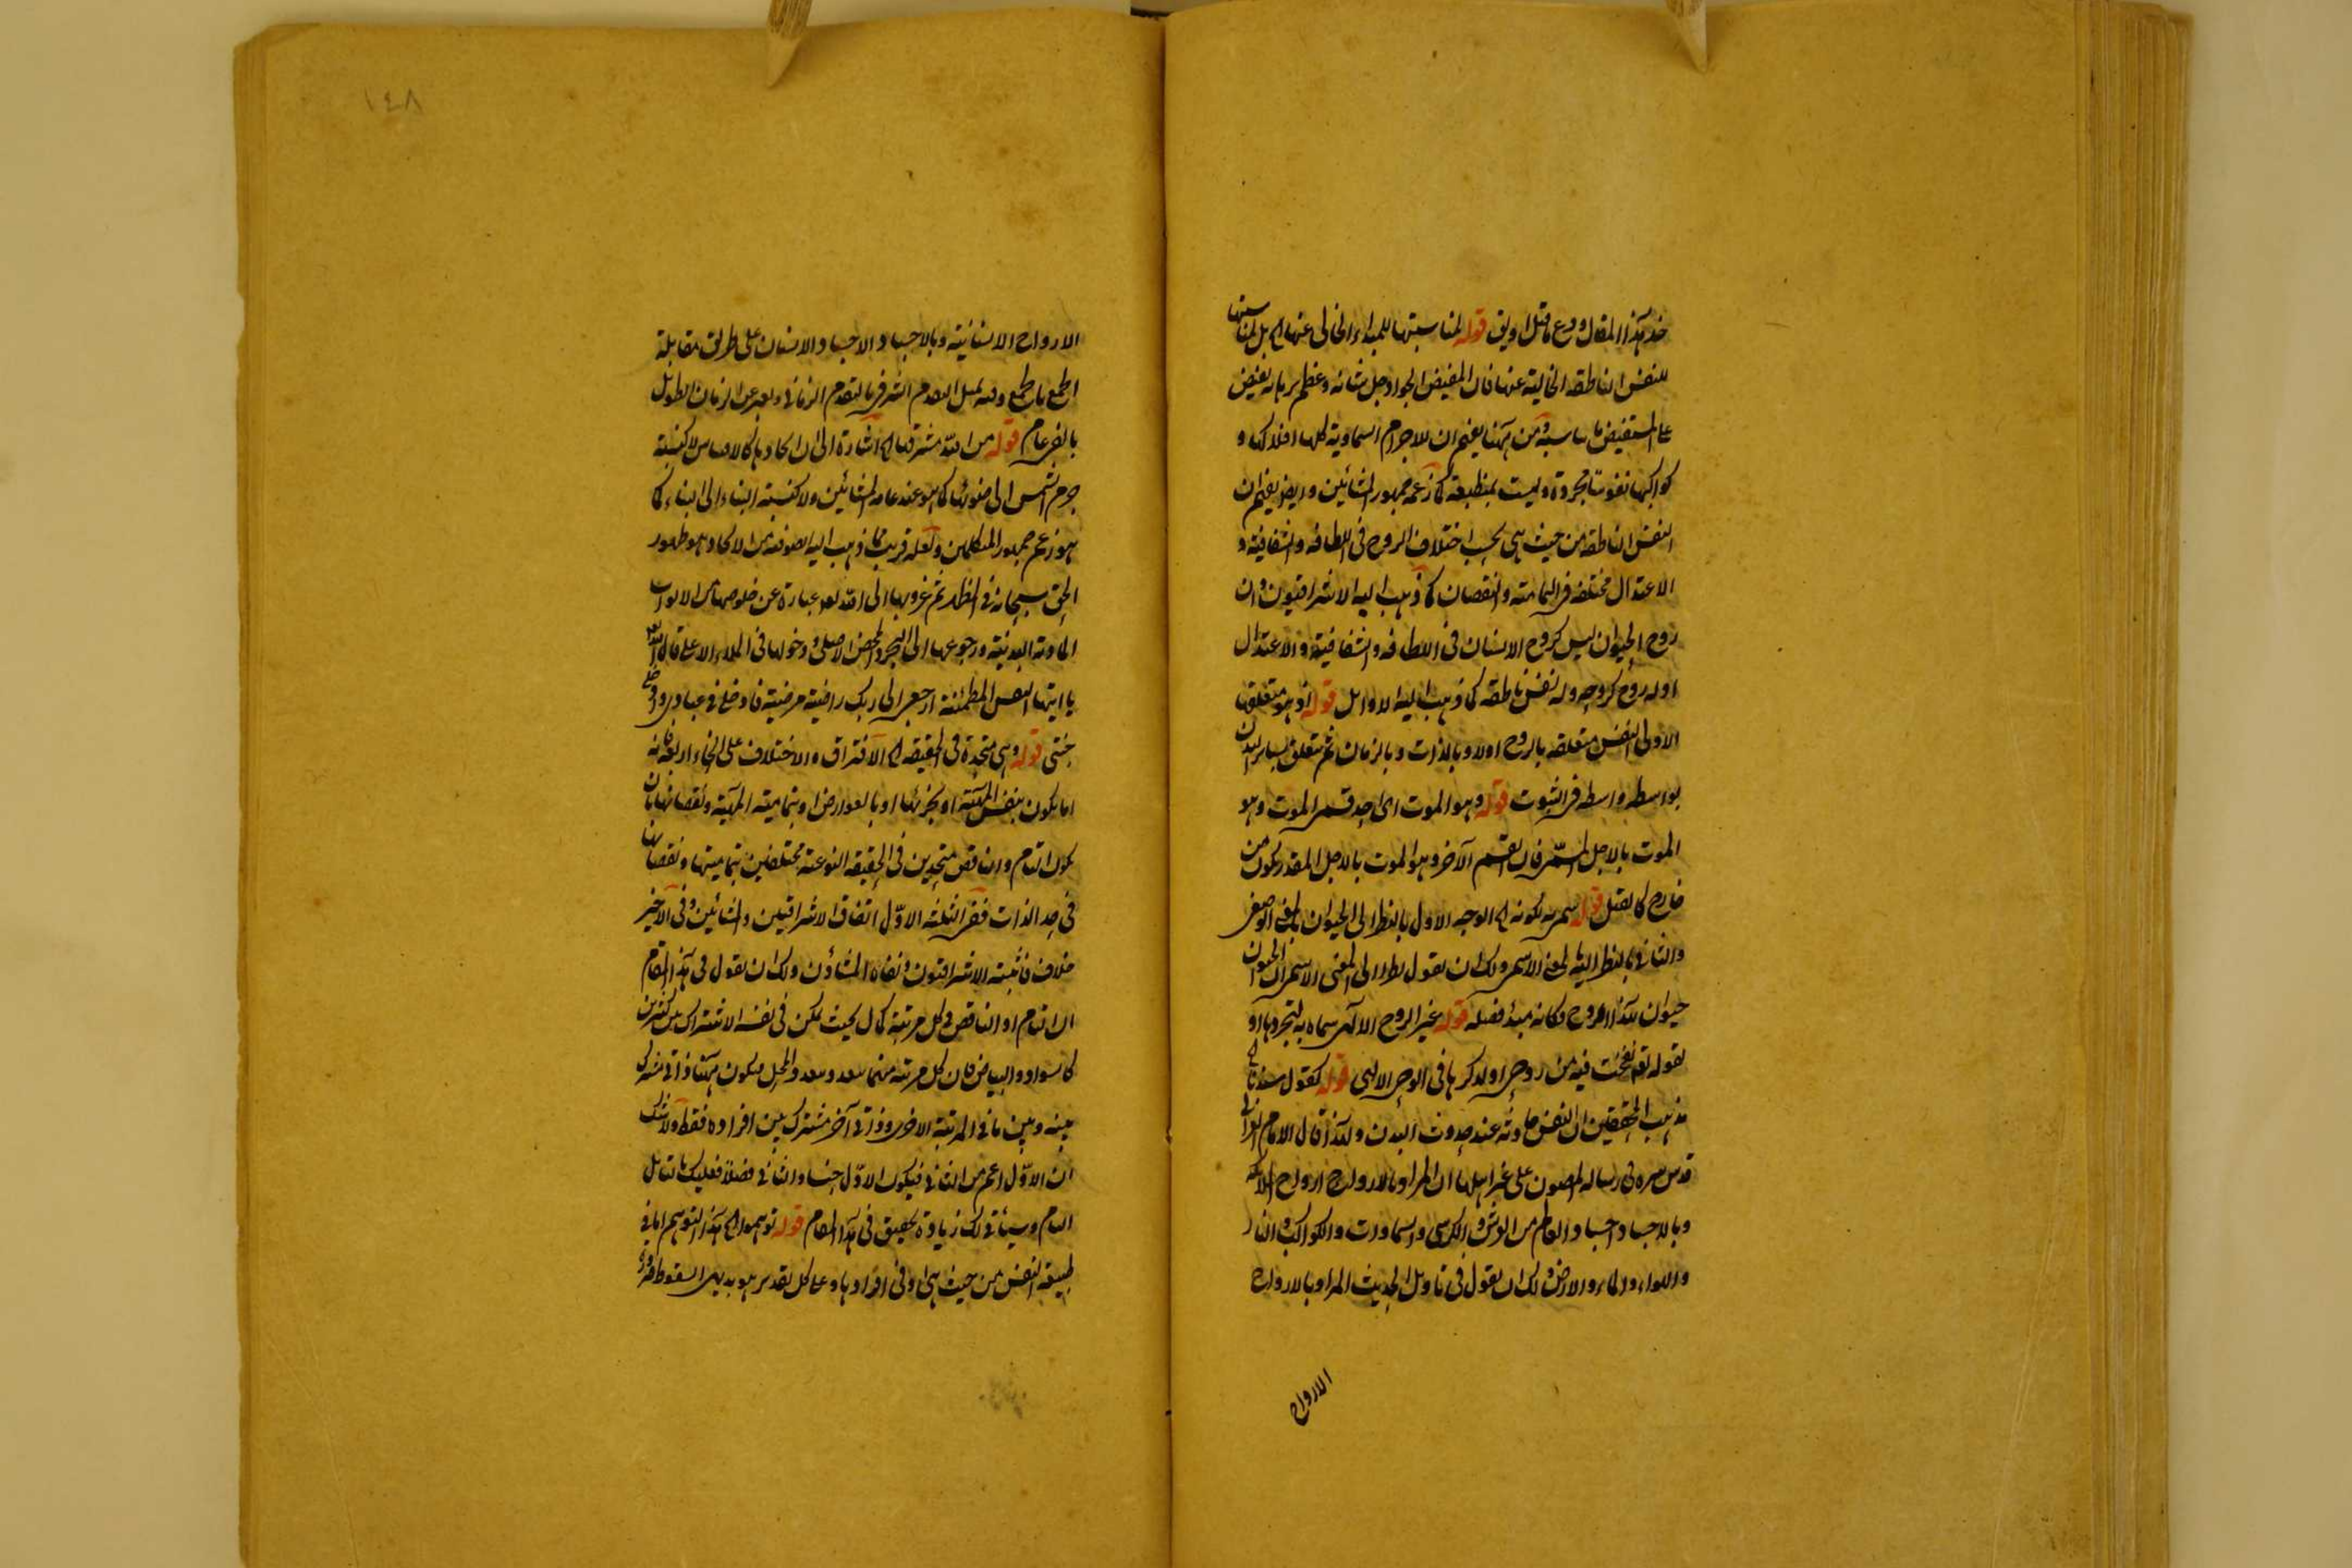 خذ هذا المقال ودع ما قيل او يق قوله لمناسبتها للمبداء الخالى عنها اه بل لمناسبتها
للنفس الناطقة الخالية عنها فان المفيض الجواد جل شانه وعظم برهانه يفيض
على المستفيض ما يناسبه ومن ههنا يفهم ان للاجرام السماوية كلها افلاكها و
كواكبها نفوسا مجردة وليست بمنطبعة كما زعمه جمهور المشائين وايضا يفهم ان
النفس الناطقة من حيث هى بحسب اختلاف الروح فى اللطافة والشفافية و
الاعتدال مختلفة فى التمامية والنقصان كما ذهب اليه الاشراقيون وان
روح الحيوان ليس كروح الانسان فى اللطافة والشفافية والاعتدال
اوله روح كروحه وله نفس ناطقة كما ذهب اليه الاوائل قوله اذ هو متعلقها
الاول النفس متعلقة بالروح اولا وبالذات وبالزمان ثم تتعلق بساير البدن
بواسطه واسطة فى الثبوت قوله وهو الموت اى احد قسمى الموت وهو
الموت بالاجل المسمى فان القسم الآخر وهو الموت بالاجل المقدر يكون من
خارج كالقتل قوله سمى به لكونه اه الوجه الاول بالنظر الى الحيوان بالمعنى الوصفى
والثانى بالنظر اليه بالمعنى الاسمى ولك ان تقول نظرا الى المعنى الاسمى ان الحيوان
حيوان بهذا الروح فكانه مبدء فصله قوله غير الروح الالهى سماه به لتجردها او
لقوله تعالى نفخت فيه من روحى او لذكرها فى الوحى الالهى قوله كقول
مذهب المحققين ان النفس حادثة عند حدوث البدن ولهذا قال الامام الغزالى
قدس سره فى رسالة المضنون على غير اهلها ان المراد بالارواح ارواح الملائكة
وبالاجساد اجساد العالم من العرش والكرسى والسماوات والكواكب والنار
والهواء والماء والارض ولك ان تقول فى تاويل الحديث المراد بالارواح
الارواح
١٤٨
الارواح الانسانية وبالاجساد الاجساد الانسان على طريق مقابلة
الجمع بالجمع وفيه تمثيل التقدم الشرفى بالتقدم الزمانى ويعبر عن الزمان الطويل
بالفى عام قوله من الله مشرقها اه اشارة الى ان
جرم الشمس الى ضوئها كما هو عند عامة المشائين ولا كنسبة البناء الى البناء كما
هو زعم جمهور المتكلمين ولعله قريب مما ذهب اليه الصوفية من الاتحاد وهو ظهور
الحق سبحانه فى المظاهر ثم غروبها الى الله تعالى عبارة عن خلوصها من الابواب
المادية البدنية ورجوعها الى التجرد المحض الاصلى ودخولها فى الملاء الاعلى قال الله تعالى
يا ايتها النفس المطمئنة ارجعى الى ربك راضية مرضية فادخلى فى عبادى وادخلى
جنتى قوله وهى متحدة فى الحقيقة اه الافتراق والاختلاف على انحاء اربعة فانه
اما يكون بنفس المهية او بجزئها او بالعوارض او بتمامية المهية ونقصانها بان
يكون التام والناقص متحدين فى الحقيقة النوعية مختلفين بتماميتها ونقصانها
فى حد الذات ففى الثلثة الاول اتفاق الاشراقيين والمشائين وفى الاخير
خلاف فاثبته الاشراقيون ونفاه المشاؤن ولك ان تقول فى هذا المقام
ان التام او الناقص فى كل مرتبة كمال بحيث يمكن فى نفسه الاشتراك بين كثيرين
كالسواد والبياض فان كل مرتبة منهما فيكون ههنا ذاتى مشترك
بينه وبين ما فى المرتبة الاخرى وذاتى آخر مشترك بين افراده فقط ولا شك
ان الاول اعم من الثانى فيكون الاول جنسا والثانى فصلا فعليك بالتامل
التام وسيأتى لك زيادة تحقيق فى هذا المقام قوله توهموا اه هذا التوهم اما فى
طبيعة النفس من حيث هى او فى افرادها وعلى كل تقدير هو بديهى السقوط